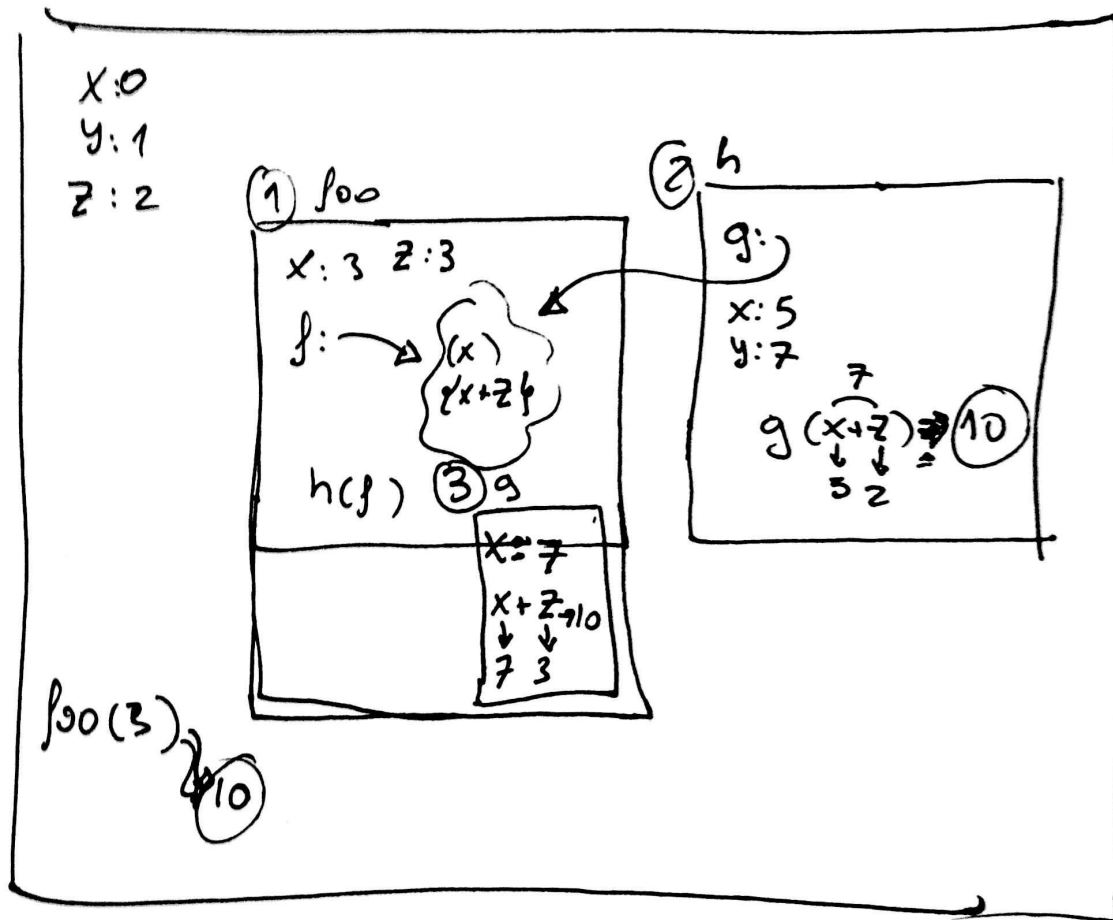 x:0
y:1
z:2
1 foo
x:3 z:3
f:
(x)
{x+z}
h(f)
3 g
x = 7
x+z→10
7 3
2 h
g:
x:5
y:7
7
g(x+z) ⇒ 10
5 2
foo(3)
10